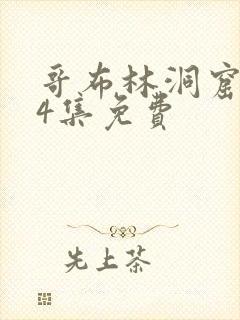 哥布林洞窟
4集免费
先上茶